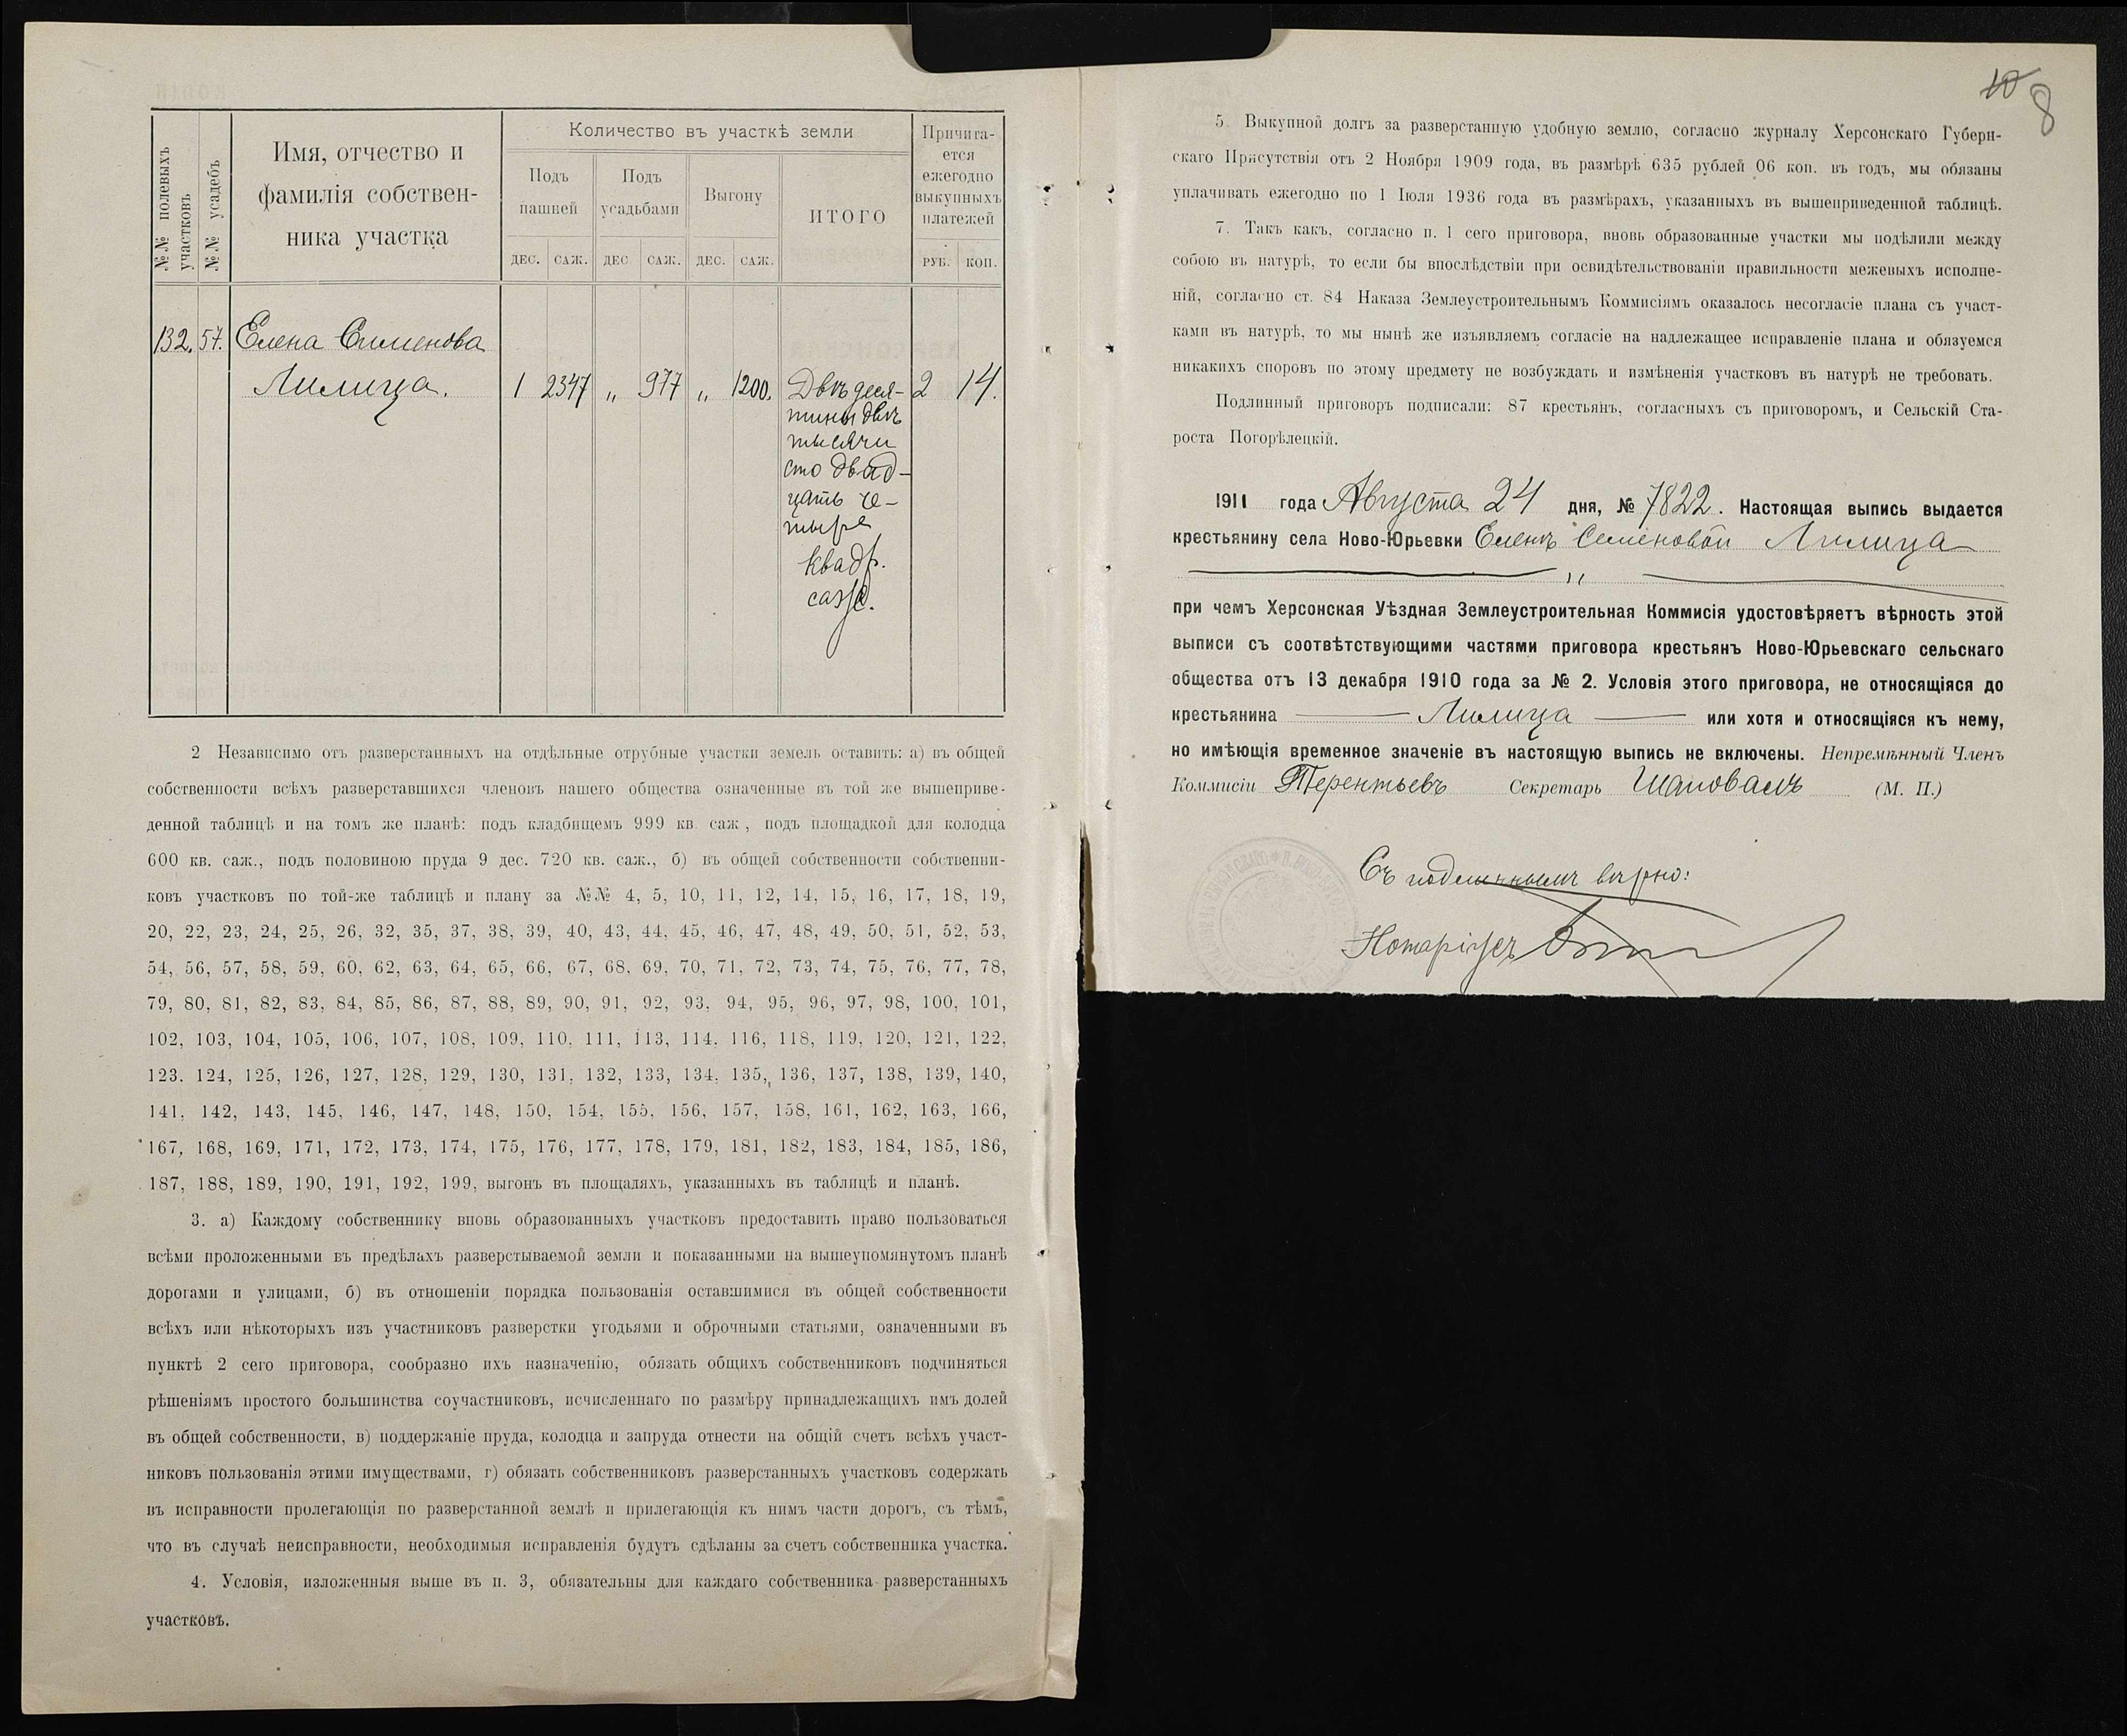 №№ полевыхъ участковъ
№№ усадебъ
Имя, отчество и
фамилія собствен-
ника участка
Количество въ участкѣ земли
Подъ
пашней
Подъ
усадьбами
Выгону
ИТОГО
Причита-
ется
ежегодно
выкупныхъ
платежей
ДЕС. САЖ. ДЕС САЖ. ДЕС. САЖ. РУБ. КОП.
132. 57. Елена Сименова
Лилица. 1 2347 „ 977 „ 1200. Двѣ деся- 2 14.
тины двѣ
тысячи
сто двад-
цать че-
тыре
квадр.
саж.
2 Независимо отъ разверстанныхъ на отдѣльные отрубные участки земель оставить: а) въ общей
собственности всѣхъ разверставшихся членовъ нашего общества означенные въ той же вышеприве-
денной таблицѣ и на томъ же планѣ: подъ кладбищемъ 999 кв. саж., подъ площадкой для колодца
600 кв. саж., подъ половиною пруда 9 дес. 720 кв. саж., б) въ общей собственности собственни-
ковъ участковъ по той-же таблицѣ и плану за №№ 4, 5, 10, 11, 12, 14, 15, 16, 17, 18, 19,
20, 22, 23, 24, 25, 26, 32, 35, 37, 38, 39, 40, 43, 44, 45, 46, 47, 48, 49, 50, 51, 52, 53,
54, 56, 57, 58, 59, 60, 62, 63, 64, 65, 66, 67, 68, 69, 70, 71, 72, 73, 74, 75, 76, 77, 78,
79, 80, 81, 82, 83, 84, 85, 86, 87, 88, 89, 90, 91, 92, 93, 94, 95, 96, 97, 98, 100, 101,
102, 103, 104, 105, 106, 107, 108, 109, 110, 111, 113, 114, 116, 118, 119, 120, 121, 122,
123. 124, 125, 126, 127, 128, 129, 130, 131, 132, 133, 134, 135, 136, 137, 138, 139, 140,
141, 142, 143, 145, 146, 147, 148, 150, 154, 155, 156, 157, 158, 161, 162, 163, 166,
167, 168, 169, 171, 172, 173, 174, 175, 176, 177, 178, 179, 181, 182, 183, 184, 185, 186,
187, 188, 189, 190, 191, 192, 199, выгонъ въ площадяхъ, указанныхъ въ таблицѣ и планѣ.
3. а) Каждому собственнику вновь образованныхъ участковъ предоставить право пользоваться
всѣми проложенными въ предѣлахъ разверстываемой земли и показанными на вышеупомянутомъ планѣ
дорогами и улицами, б) въ отношеніи порядка пользованія оставшимися въ общей собственности
всѣхъ или нѣкоторыхъ изъ участниковъ разверстки угодьями и оброчными статьями, означенными въ
пунктѣ 2 сего приговора, сообразно ихъ назначенію, обязать общихъ собственниковъ подчиняться
рѣшеніямъ простого большинства соучастниковъ, исчисленнаго по размѣру принадлежащихъ имъ долей
въ общей собственности, в) поддержаніе пруда, колодца и запруда отнести на общій счетъ всѣхъ участ-
никовъ пользованія этими имуществами, г) обязать собственниковъ разверстанныхъ участковъ содержать
въ исправности пролегающія по разверстанной землѣ и прилегающія къ нимъ части дорогъ, съ тѣмъ,
что въ случаѣ неисправности, необходимыя исправленія будутъ сдѣланы за счетъ собственника участка.
4. Условія, изложенныя выше въ п. 3, обязательны для каждаго собственника разверстанныхъ
участковъ.
10 8
5. Выкупной долгъ за разверстанную удобную землю, согласно журналу Херсонскаго Губерн-
скаго Присутствія отъ 2 Ноября 1909 года, въ размѣрѣ 635 рублей 06 коп. въ годъ, мы обязаны
уплачивать ежегодно по 1 Іюля 1936 года въ размѣрахъ, указанныхъ въ вышеприведенной таблицѣ.
7. Такъ какъ, согласно п. 1 сего приговора, вновь образованные участки мы подѣлили между
собою въ натурѣ, то если бы впослѣдствіи при освидѣтельствованіи правильности межевыхъ исполне-
ній, согласно ст. 84 Наказа Землеустроительнымъ Коммисіямъ оказалось несогласіе плана съ участ-
ками въ натурѣ, то мы нынѣ же изъявляемъ согласіе на надлежащее исправленіе плана и обязуемся
никакихъ споровъ по этому предмету не возбуждать и измѣненія участковъ въ натурѣ не требовать.
Подлинный приговоръ подписали: 87 крестьянъ, согласныхъ съ приговоромъ, и Сельскій Ста-
роста Погорѣлецкій.
1911 года Августа 24 дня, № 7822. Настоящая выпись выдается
крестьянину села Ново-Юрьевки Еленѣ Семеновой Лилица
„
при чемъ Херсонская Уѣздная Землеустроительная Коммисія удостовѣряетъ вѣрность этой
выписи съ соотвѣтствующими частями приговора крестьянъ Ново-Юрьевскаго сельскаго
общества отъ 13 декабря 1910 года за № 2. Условія этого приговора, не относящіяся до
крестьянина Лилица или хотя и относящіяся къ нему,
но имѣющія временное значеніе въ настоящую выпись не включены. Непремѣнный Членъ
Коммисіи Терентьевъ Секретарь Шаповалъ (М. П.)
Съ подлиннымъ вѣрно:
Нотаріусъ